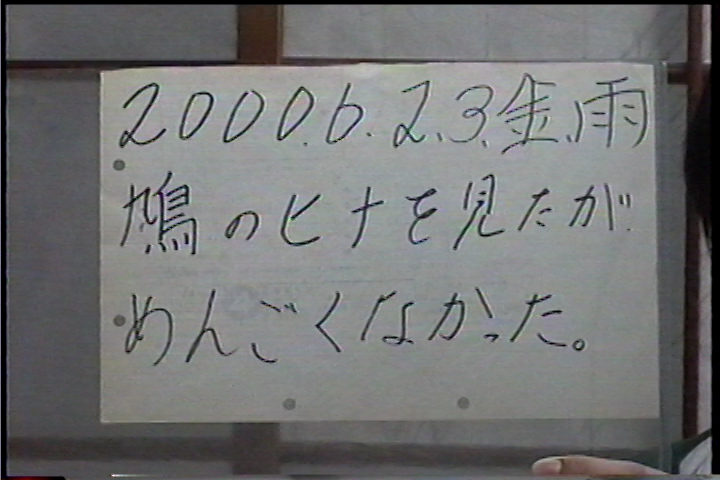 2000.6.23.金、雨
鳩のヒナを見たが
めんごくなかった。